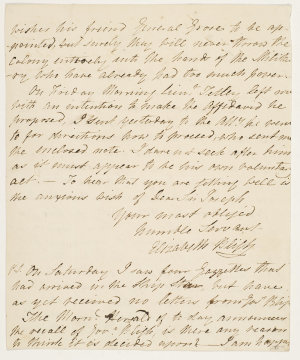 wishes his friend General Grose to be ap-
pointed, but surely they will never throw the
Colony entirely into the hands of the Milita-
ry who have already had too much power.
On Friday Morning Lieut. left me
with an intention to make the Affidavit he
proposed, I sent yesterday to the Atty. Genl.
for directions how to proceed, who sent me
the enclosed note. I dare not seek after him
as it must appear to be his own voluntary
act. — To hear that you are getting well is
the anxious wish of Dear Sir Joseph
Your most obliged
humble Servant
Elizabeth Bligh
P.S. On Saturday I saw four Gazettes that
had arrived in the Ship but have
as yet received no letters from Govr. Bligh
The Morng. Herald of to day announces
the recall of Govr. Bligh is there any reason
to think it is decided upon? — I am happy